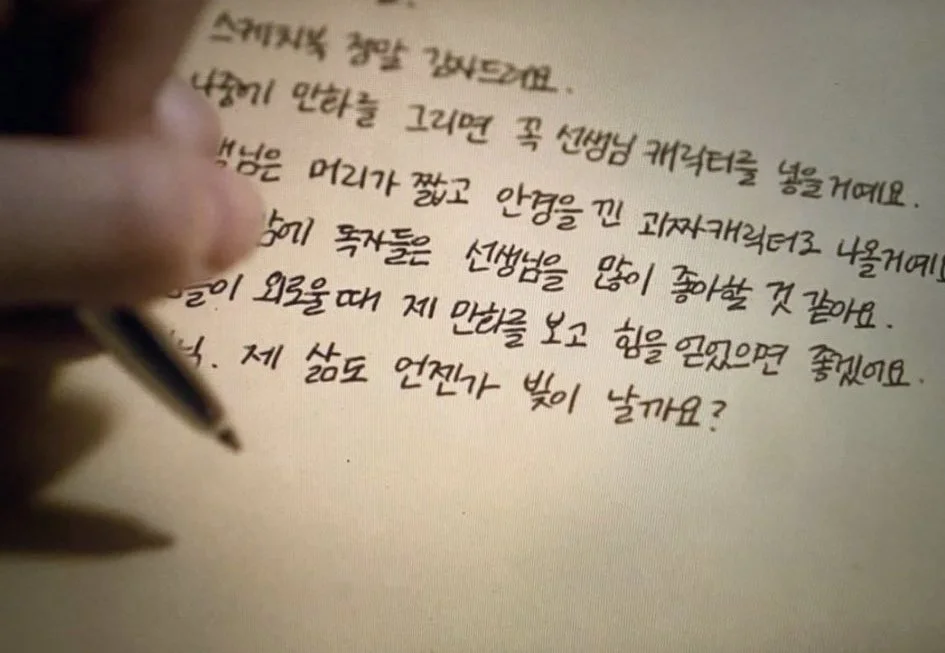 스케치북 정말 감사드려요.
나중에 만화를 그리면 꼭 선생님 캐릭터를 넣을거예요.
머리가 짧고 안경을 낀 괴짜캐릭터로 나올거예
독자들은 선생님을 많이 좋아할 것 같아요.
외로울때 제 만화를 보고 힘을 얻었으면 좋겠어요.
제 삶도 언젠가 빛이 날까요?